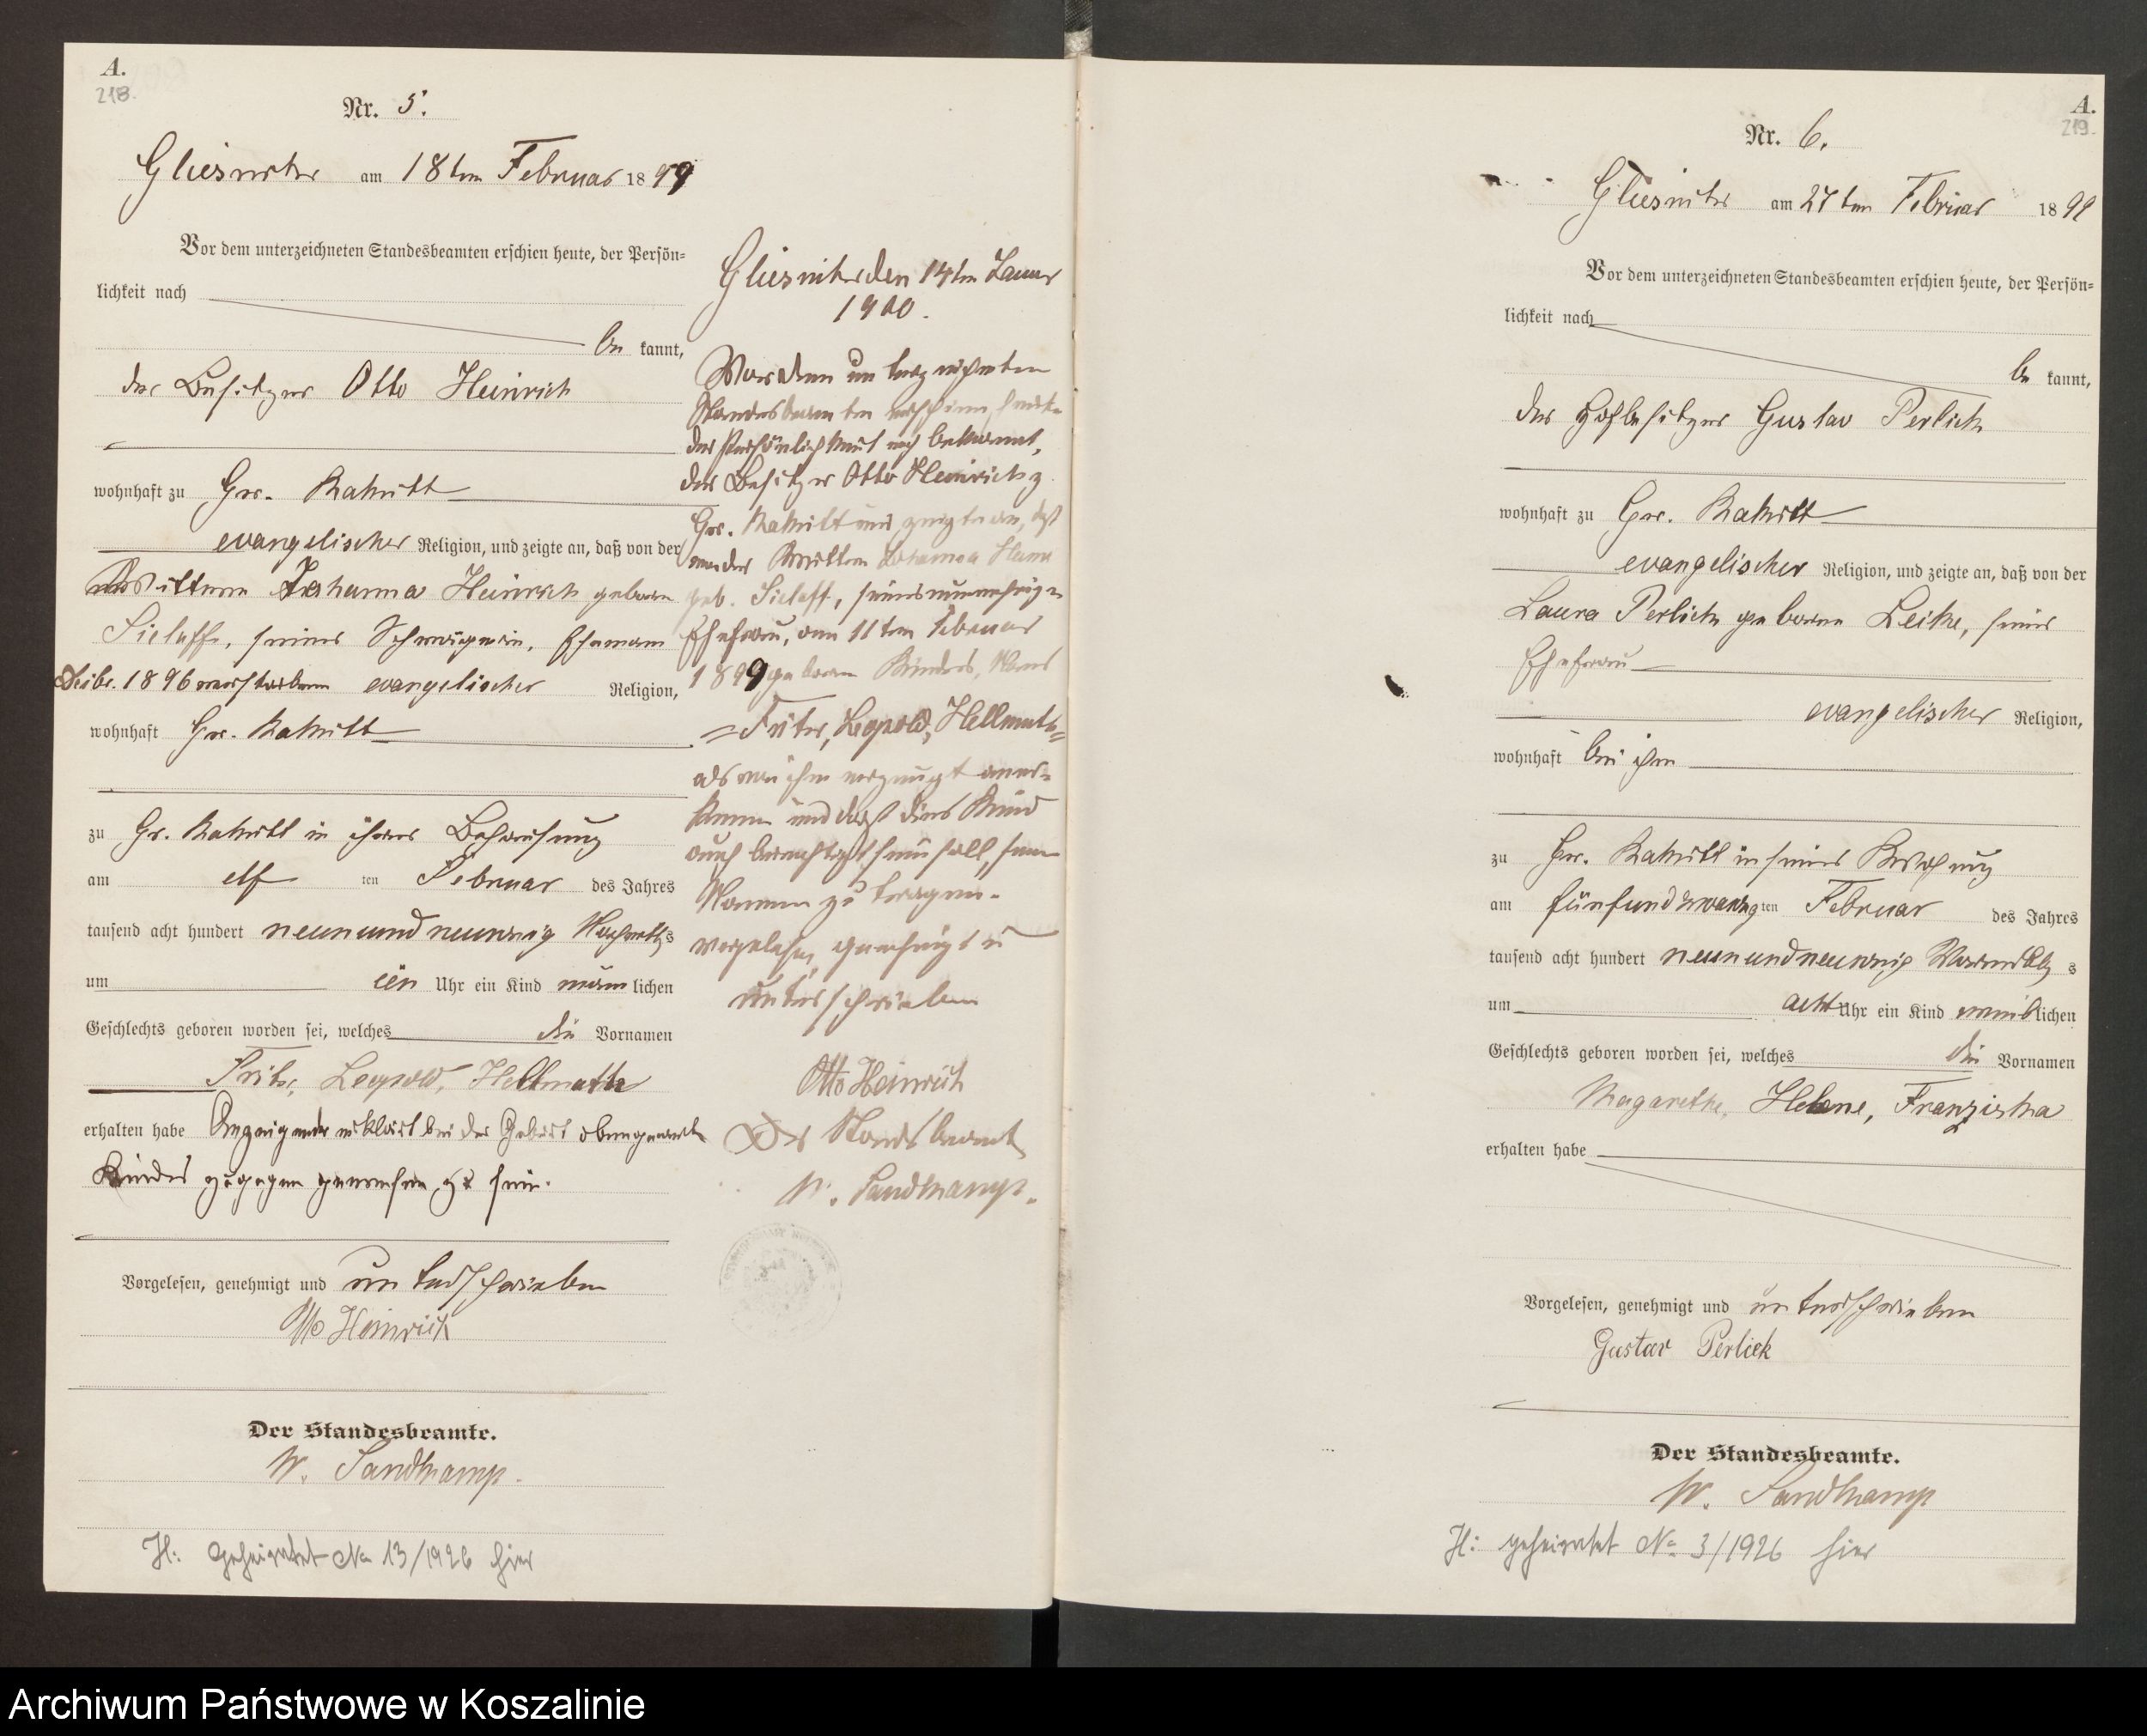 A.
218.
Nr. 5.
Gliesnitz am 18ten Februar 1899
Vor dem unterzeichneten Standesbeamten erschien heute, der Persön-
lichkeit nach
be kannt,
der Besitzer Otto Heinrich
wohnhaft zu Gr. Rakitt
evangelischer Religion, und zeigte an, daß von der
Wittwe Johanna Heinrich geborene
Sielaff, seiner Schwägerin, Ehemann
1896 verstorben evangelischer Religion,
wohnhaft Gr. Rakitt
zu Gr. Rakitt in ihrer Behausung
am elf ten Februar des Jahres
tausend acht hundert neunundneunzig Nachmittags
um ein Uhr ein Kind männlichen
Geschlechts geboren worden sei, welches die Vornamen
Fritz, Leopold, Hellmuth
erhalten habe Anzeigender erklärt bei der Geburt obengenannten
Kindes zugegen gewesen zu sein.
Vorgelesen, genehmigt und unterschrieben
Otto Heinrich
Der Standesbeamte.
W. Sandkamp.
H: geheiratet No 13/1926 hier
Gliesnitz den 14ten Januar
1900.
Vor dem unterzeichneten
Standesbeamten erschien heute
der Persönlichkeit nach bekannt,
der Besitzer Otto Heinrich z.
Gr. Rakitt und zeigte an, daß
von der Wittwe Johanna Hein
geb. Sielaff, seiner nunmehrigen
Ehefrau, am 11ten Februar
1899 geborene Kindes, Namens
=Fritz, Leopold, Hellmuth=
als von ihm erzeugt aner-
kenne und daß dies Kind
auch berechtigt sein soll, seinen
Namen zu tragen.
vorgelesen, genehmigt u
unterschrieben
Otto Heinrich
Der Standesbeamte
W. Sandkamp.
A.
219.
Nr. 6.
Gliesnitz am 27ten Februar 1899
Vor dem unterzeichneten Standesbeamten erschien heute, der Persön-
lichkeit nach
be kannt,
der Hofbesitzer Gustav Perlick
wohnhaft zu Gr. Rakitt
evangelischer Religion, und zeigte an, daß von der
Laura Perlick geborene Leike, seiner
Ehefrau
evangelischer Religion,
wohnhaft bei ihm
zu Gr. Rakitt in seiner Wohnung
am fünfundzwanzigten Februar des Jahres
tausend acht hundert neunundneunzig Vormittags
um acht Uhr ein Kind weiblichen
Geschlechts geboren worden sei, welches die Vornamen
Magarethe, Helene, Franziska
erhalten habe
Vorgelesen, genehmigt und unterschrieben
Gustav Perlick
Der Standesbeamte.
W. Sandkamp
H: geheiratet No 3/1926 hier
Archiwum Państwowe w Koszalinie